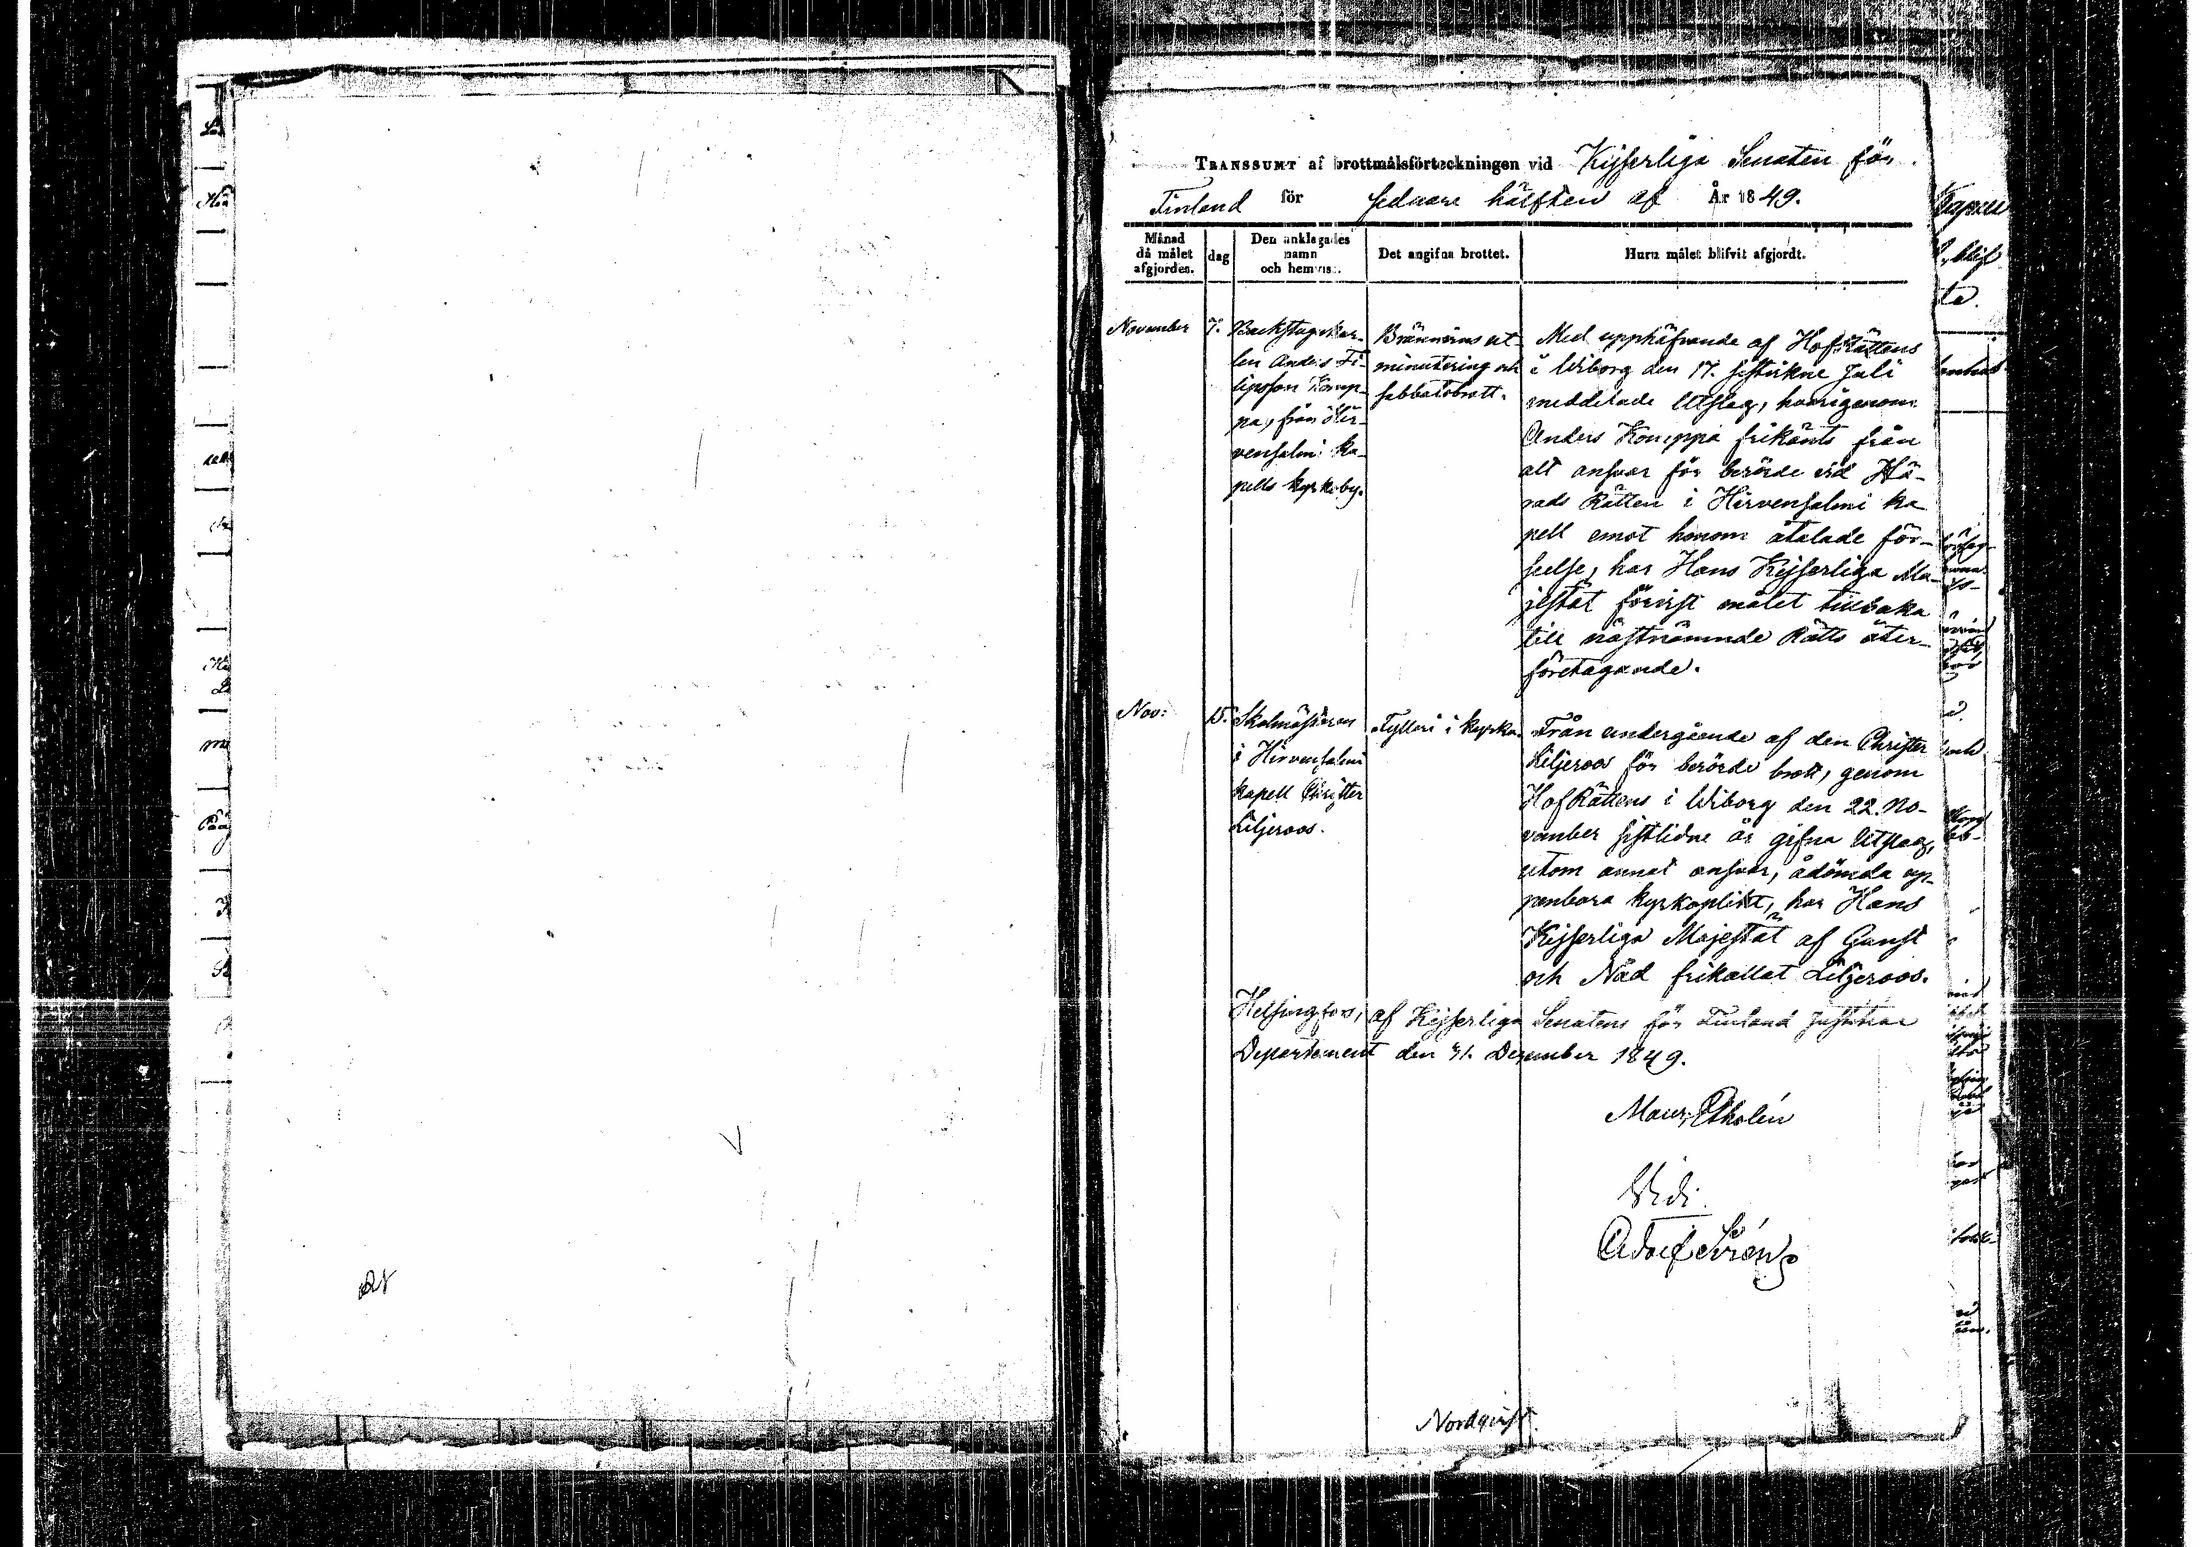 TRANSSUMT af brottmålsförteckningen vid Kejserliga Senaten för
Finland för sednare hälften af År 1849.
Månad då målet afgjordes.
dag
Den anklagades namn och hemvist.
Det angifna brottet.
Huru målet blifvit afgjordt.
November
7.
Backstugukar-
len Anders Fi-
lipsson Komp-
pa, från Hir-
vensalmi ka-
pells kyrkoby.
Brännvins ut-
minutering och
sabbatsbrott.
Med upphäfvande af HofRättens
i Wiborg den 17. sistvikne Juli
meddelade Utslag, hvarigenom
Anders Komppa frikänts från
alt ansvar för berörde vid Hä-
rads Rätten i Hirvensalmi ka
pell emot honom åtalade för-
seelse, har Hans Kejserliga Ma-
jestät förvist målet tillbaka
till nästnämnde Rätts åter-
företagande.
Nov:
15.
Skolmästaren
i Hirvensalmi
kapell Christer
Liljeroos.
Fylleri i kyrka.
Från undergående af den Christer
Liljeroos för berörde brott, genom
HofRättens i Wiborg den 22. No-
vember sistlidne år gifna Utslag,
utom annat ansvar, ådömda up-
penbara kyrkoplikt, har Hans
Kejserliga Majestät af Gunst
och Nåd frikallat Liljeroos.
Helsingfors, af Kejserliga Senatens för Finland Justitiae
Departement den 31. December 1849.
Maur. Etholén
Vidi
Nordqvist.